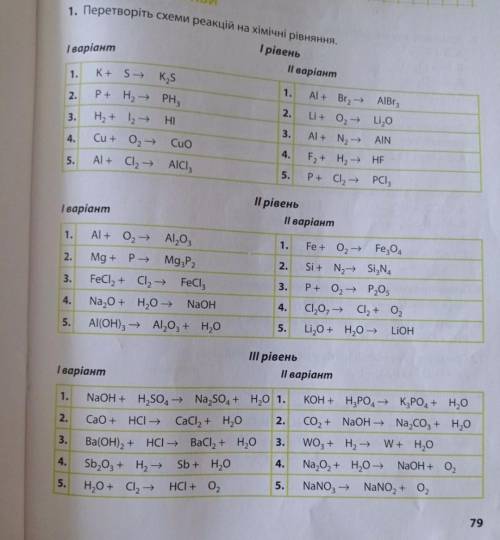 1. Перетворіть схеми реакцій на хімічні рівняння.
I рівень
I варіант
1. K + S → K₂S
2. P + H₂ → PH₃
3. H₂ + I₂ → HI
4. Cu + O₂ → CuO
5. Al + Cl₂ → AlCl₃
II варіант
1. Al + Br₂ → AlBr₃
2. Li + O₂ → Li₂O
3. Al + N₂ → AlN
4. F₂ + H₂ → HF
5. P + Cl₂ → PCl₃
II рівень
I варіант
1. Al + O₂ → Al₂O₃
2. Mg + P → Mg₃P₂
3. FeCl₂ + Cl₂ → FeCl₃
4. Na₂O + H₂O → NaOH
5. Al(OH)₃ → Al₂O₃ + H₂O
II варіант
1. Fe + O₂ → Fe₃O₄
2. Si + N₂ → Si₃N₄
3. P + O₂ → P₂O₅
4. Cl₂O₇ → Cl₂ + O₂
5. Li₂O + H₂O → LiOH
III рівень
I варіант
1. NaOH + H₂SO₄ → Na₂SO₄ + H₂O
2. CaO + HCl → CaCl₂ + H₂O
3. Ba(OH)₂ + HCl → BaCl₂ + H₂O
4. Sb₂O₃ + H₂ → Sb + H₂O
5. H₂O + Cl₂ → HCl + O₂
II варіант
1. KOH + H₃PO₄ → K₃PO₄ + H₂O
2. CO₂ + NaOH → Na₂CO₃ + H₂O
3. WO₃ + H₂ → W + H₂O
4. Na₂O₂ + H₂O → NaOH + O₂
5. NaNO₃ → NaNO₂ + O₂
79